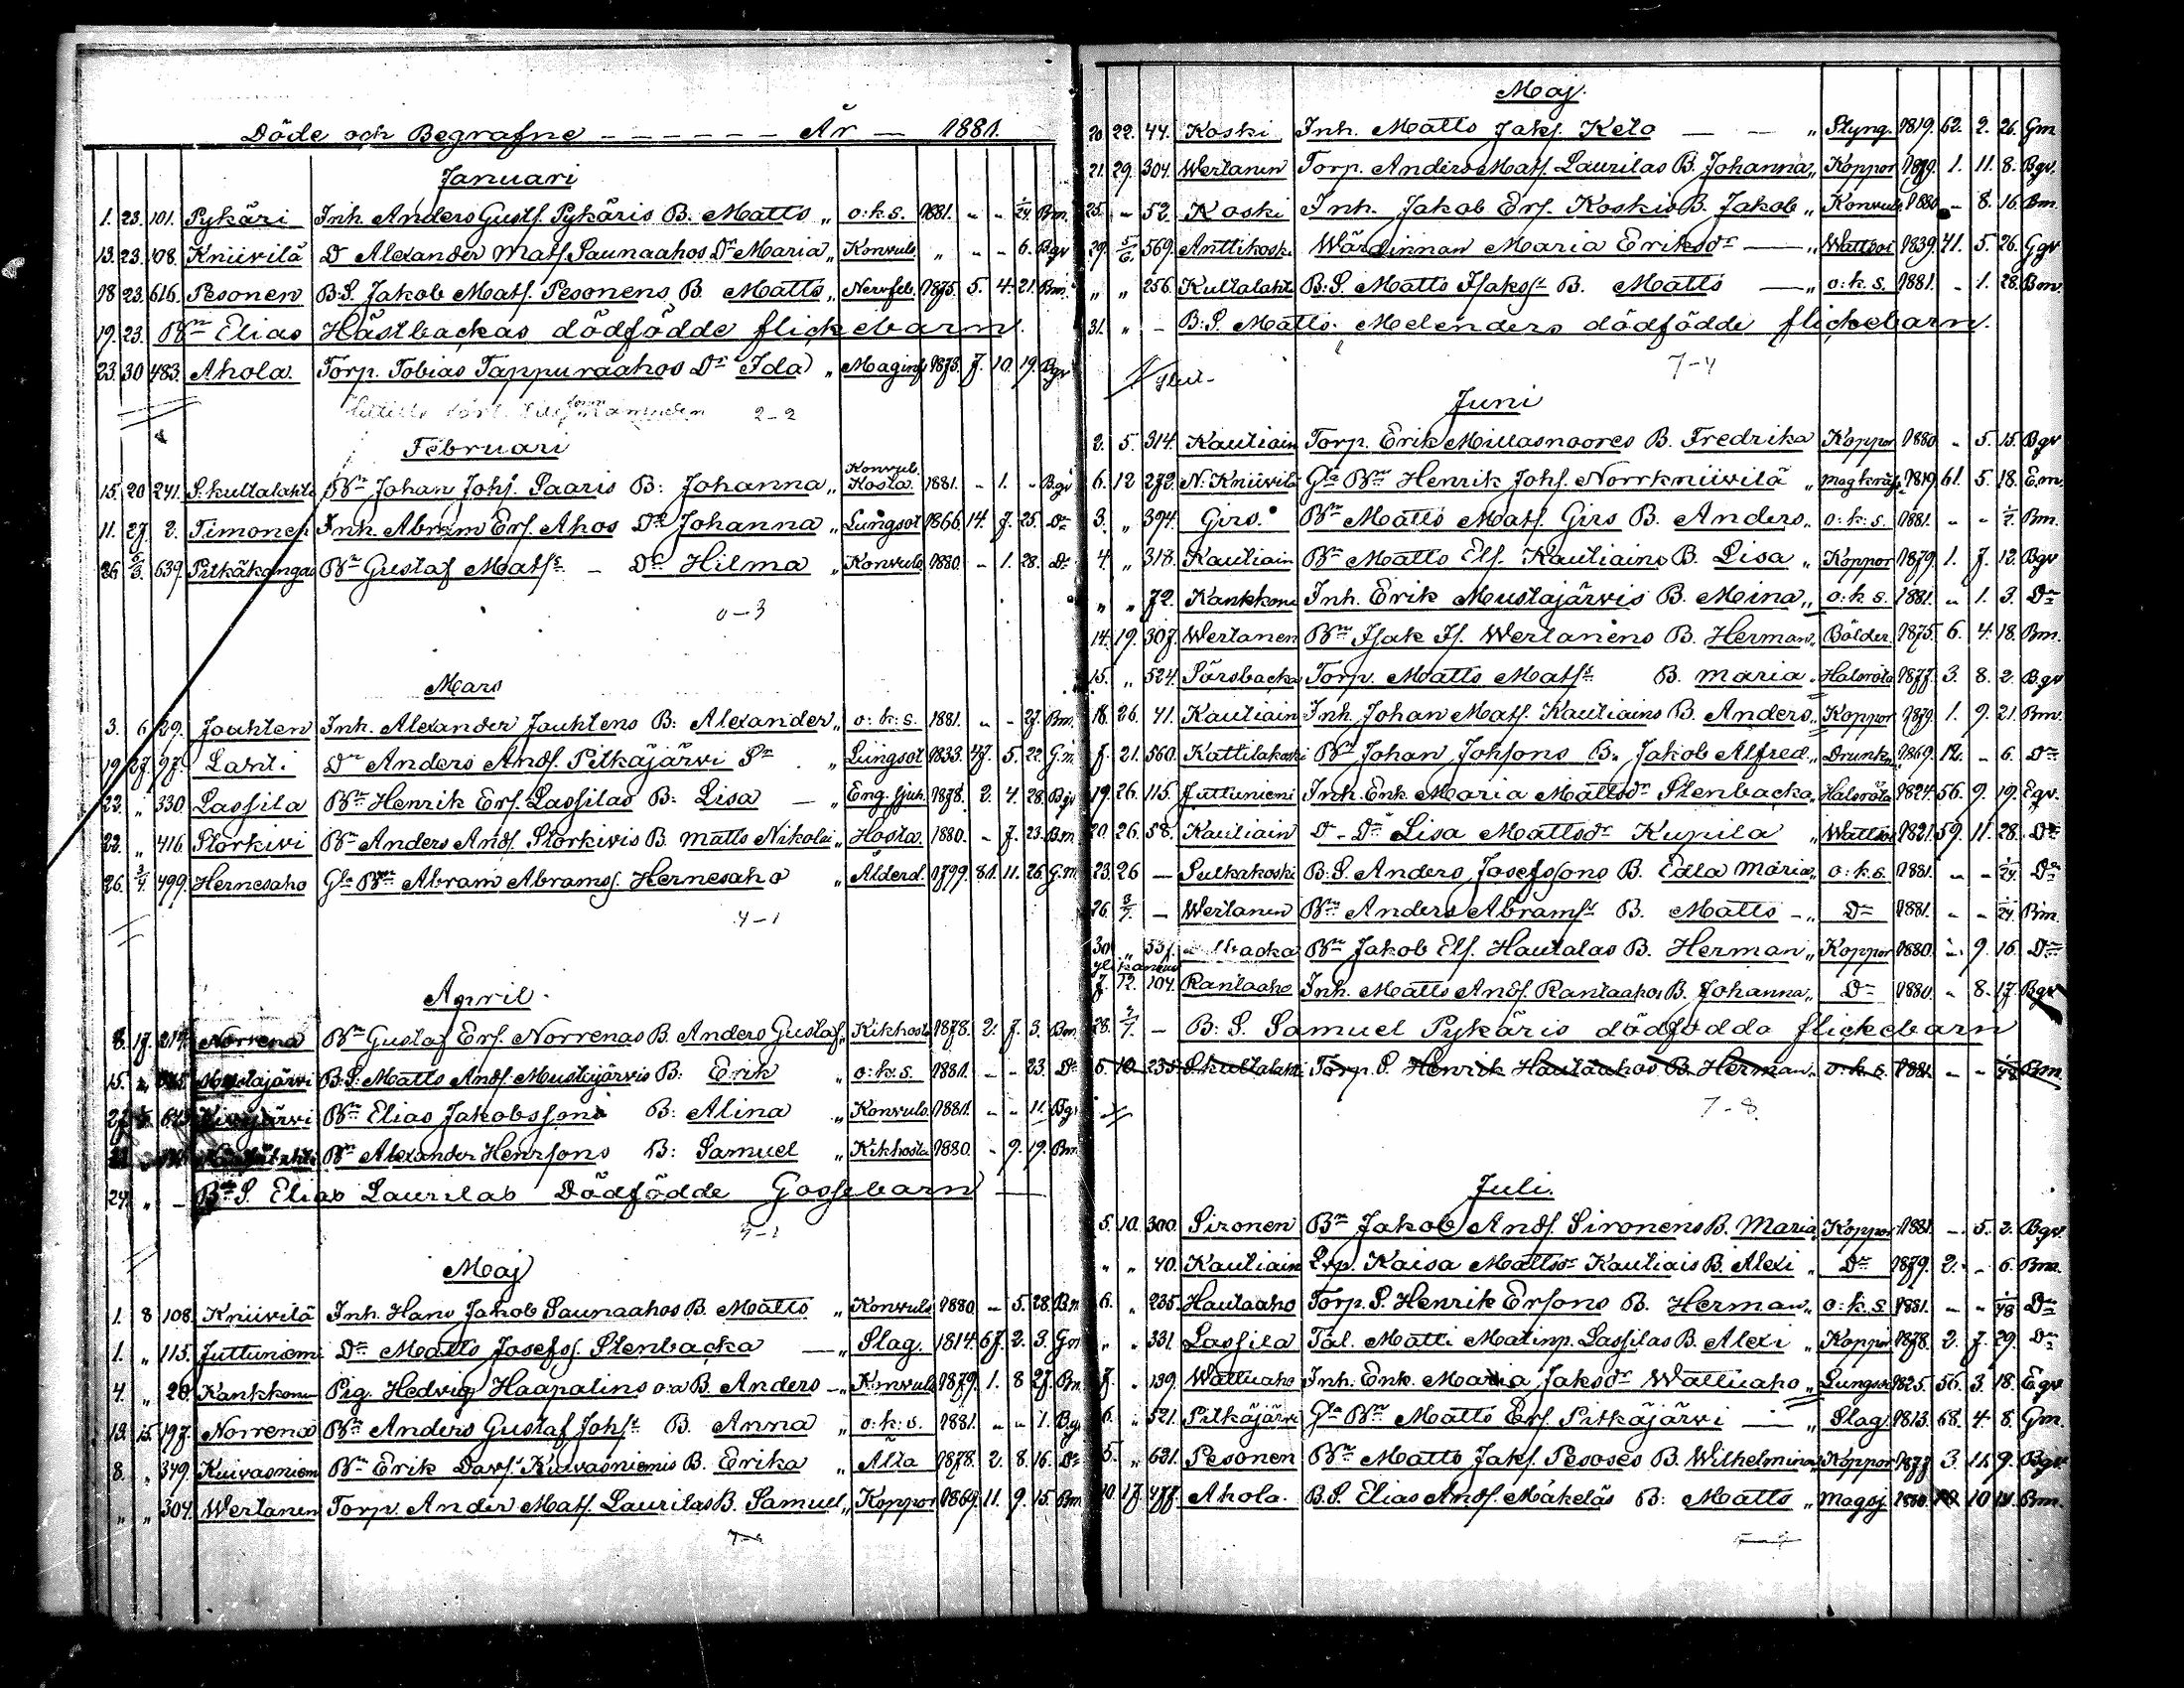 Döde och Begrafne - - - - - - År - 1881.
Januari
1. 23. 101. Pykäri Inh. Anders Gustfs. Pykäris B. Matts „ o:k.s. 1881. „ „ 1/24 Bm.
13. 23. 108. Kniivilä Dº Alexander Matss. Saunaahos Dr Maria „ Konvuls. „ „ - 6. Bgv
18 23. 616. Pesonen B.S. Jakob Matss. Pesonens B. Matts „ Nervfeb. 1875. 5. 4. 21. Bm.
19. 23. Bn Elias Hästbackas dödfödde flickebarn.
23. 30 483. Ahola. Torp. Tobias Tappuraahos Dr Ida „ Maginfl 1873. 7. 10. 19. Bgv
2-2
Februari
15. 20 241. S.kultalahti Bn Johan Johs. Saaris B: Johanna „ Konvul. Hosta. 1881. - 1. „ Bgv
11. 27 2. Timonen Inh. Abram Ers. Ahos Dr Johanna „ Lungsot 1866. 14. 7. 25. Dº
26 6/3. 639. Pitkäkangas Bn Gustaf Matss - Dr Hilma „ Konvuls 1880. - 1. 28. Dº
0-3
Mars
3. 6 29. Jauhten Inh. Alexander Jauhtens B: Alexander „ o:k:s. 1881. „ - 27. Bm.
19 27. 97. Lahti Dº Anders Ands. Pitkäjärvi Sn „ Lungsot 1833. 47. 5. 22. G.m.
22. „ 330. Lassila Bn Henrik Ers. Lassilas B: Lisa - „ Eng. sjuk. 1878. 2. 4. 28. Bgv
22. „ 416. Storkivi Bn Anders Ands. Storkivis B. Matts Nikolai „ Hosta. 1880. - 7. 23. Bm.
26. 3/4. 499. Hernesaho Gla Bn Abram Abrams. Hernesaho „ Ålderd. 1799. 81. 11. 26. G.m.
4-1
April.
8. 17. 219. Norrena Bn Gustaf Ers. Norrenas B. Anders Gustaf „ Kikhosta 1878. 2. 7. 3. Bm.
15. „ Mustajärvi B.S. Matts Ands. Mustajärvis B: Erik „ o:k.s. 1881. - - 23. Dº
27 643 Kivijärvi Bn Elias Jakobssons B: Alina „ Konvuls. 1881. „ - 11. Bgv
Bn Alexander Henrsons B: Samuel „ Kikhosta 1880. - 9. 19. Bm.
24. „ - Bn S. Elias Laurilas Dödfödde Gossebarn -
4-1
Maj
1. 8 108. Kniivilä Inh. Hans Jakob Saunaahos B. Matts „ Konvuls 1880. - 5. 28. Bm
1. „ 115. Juttuniem Dº Matts Josefs. Stenbacka - „ Slag. 1814. 67. 2. 3. Gm
4. „ 20. Kankkonen Pig. Hedvig Haapalins o:a B. Anders - „ Konvuls 1879. 1. 8 27. Bm.
13. 15. 197. Norrenas Bn Anders Gustaf Johss. B. Anna „ o:k:s. 1881. „ „ 1. Bgv
8. „ 349. Kuivasniem Bn Erik Davs. Kuivasniemis B. Erika „ Älta 1878. 2. 8. 16. Dº
„ „ 304. Wertanen Torp. Anders Matss. Laurilas B. Samuel „ Koppor 1869. 11. 9. 15. Bm
Maj.
20. 22. 44. Koski Inh. Matts Jaks. Keto - - „ Styng. 1819. 62. 2. 26. Gm
21. 29. 304. Wertanen Torp. Anders Matss. Laurilas B. Johanna „ Koppor 1879. 1. 11. 8. Bgv.
25. „ 52. Koski Inh. Jakob Ers. Koskis B. Jakob „ Konvuls 1880 - 8. 16. Bm.
29. 5/6. 569. Anttikoski Wärdinnan Maria Eriksdr - „ Wattsot 1839. 41. 5. 26. Ggv
„ „ 256. Kultalahti B:S. Matts Isakss B. Matts - „ o:k.s. 1881. - 1. 28. Bm.
31. „ - B:S. Matts Melenders dödfödde flickebarn.
7-4
Juni
2. 5. 314. Kautiain Torp. Erik Millasnoores B. Fredrika Koppor 1880. „ 5. 15. Bgv
6. 12 272. N. Kniivilä Gla Bn Henrik Johs. Norrkniivilä „ magkräft 1819 61. 5. 18. E.m.
3. „ 394. Girs. Bn Matts Matss. Girs B. Anders „ o:k:s. 1881. „ „ 1/2. Bm.
4. „ 318. Kautiain Bn Matts Els. Kautiains B. Lisa „ Koppor 1879. 1. 7. 12. Bgv
„ „ 72. Kankkonen Inh. Erik Mustajärvis B. Mina „ o:k.s. 1881. „ 1. 3. Dº
14. 19. 307. Wertanen Bn Isak Is. Wertanens B. Herman „ Bölder 1875. 6. 4. 18. Bm.
15. „ 524. Sarsbacka Torp. Matts Matss B. Maria „ Halsröta 1877. 3. 8. 2 B.gv
18. 26. 41. Kautiain Inh. Johan Matss. Kautiains B. Anders „ Koppor 1879. 1. 9. 21. Bm.
7. 21. 560. Kattilakoski Bn Johan Johsons B. Jakob Alfred „ Drunkn. 1869. 12. - 6. Dº
19. 26. 115. Juttuniemi Inh. Enk. Maria Mattsdr Stenbacka „ Halsröta 1824. 56. 9. 19. Egv.
20. 26. 58. Kautiain Dº - Dº Lisa Mattsdr Kupila „ Wattsot 1821. 59. 11. 28. Dº
23. 26 - Sulkakoski B.S. Anders Josefssons B. Edla Maria „ o:k.s. 1881. „ - 1/24. Dº
26. 3/7. - Wertanen Bn Anders Abramss B. Matts - „ Dº 1881. „ „ 1/24. Bm.
30 „ 337. backa Bn Jakob Els. Hautalas B. Herman „ Koppor 1880. „ 9. 16. Dº
7. 12. 104. Rantaaho Inh. Matts Ands. Rantaahos B. Johanna „ Dº 1880. „ 8. 17. Bgv
28. 3/7. - B:S. Samuel Pykäris dödfödda flickebarn
6. 10. 235 S.kultalahti Torp. S. Henrik Hautaahos B. Herman „ o.k.s. 1881. „ - 1/48 Bm.
7-8.
Juli.
5. 10. 300. Sironen Bn Jakob Ands. Sironens B. Maria Koppor 1881. -. 5. 2. Bgv.
„ „ 40. Kautiain Kaisa Mattsdr Kautiais B. Alexi „ Dº 1879. 2. - 6. Bm.
6. „ 235 Hautaaho Torp. S. Henrik Ersons B. Herman „ o:k.s. 1881. - „ 1/48 Dº
„ „ 331. Lassila Tal. Matti Matinp. Lassilas B. Alexi „ Koppor 1878. 2. 7. 29. Dº
7. „ 139. Wattuaho Inh. Enk. Maria Jaksdr Wattuaho „ Lungsot 1825. 56. 3. 18. Egv
6. „ 521. Pitkäjärvi Gla Bn Matts Ers. Pitkäjärvi - „ Slag 1813. 68. 4. 8. Gm.
5. „ 631. Pesonen Bn Matts Jaks. Pesoses B. Wilhelmina „ Koppor 1877 3. 11. 9. Bgv
10. 17. 477. Ahola. B.S. Elias Ands. Mäkeläs B: Matts „ Magsj. 1880. 10 Bm.